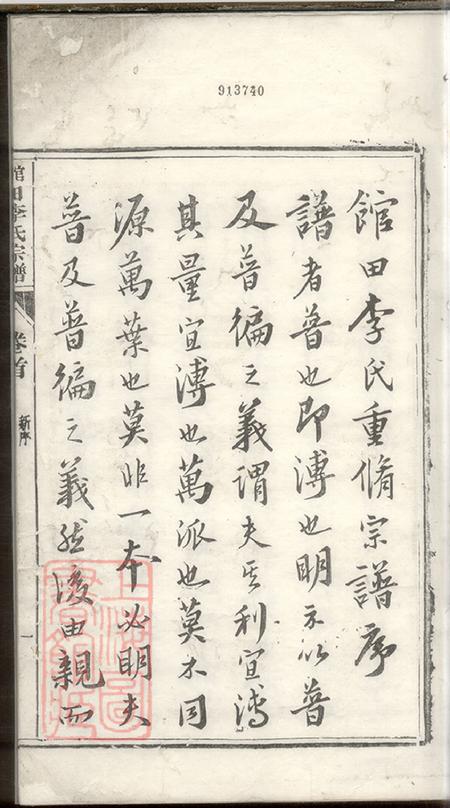 913740
館田李氏重脩宗譜序
譜者普也即溥也明示以普
及普徧之義謂夫其利宜溥
其量宜溥也萬派也莫不同
源萬葉也莫非一本必明夫
普及普徧之義然後由親而
館田李氏宗譜
卷首
新序
一